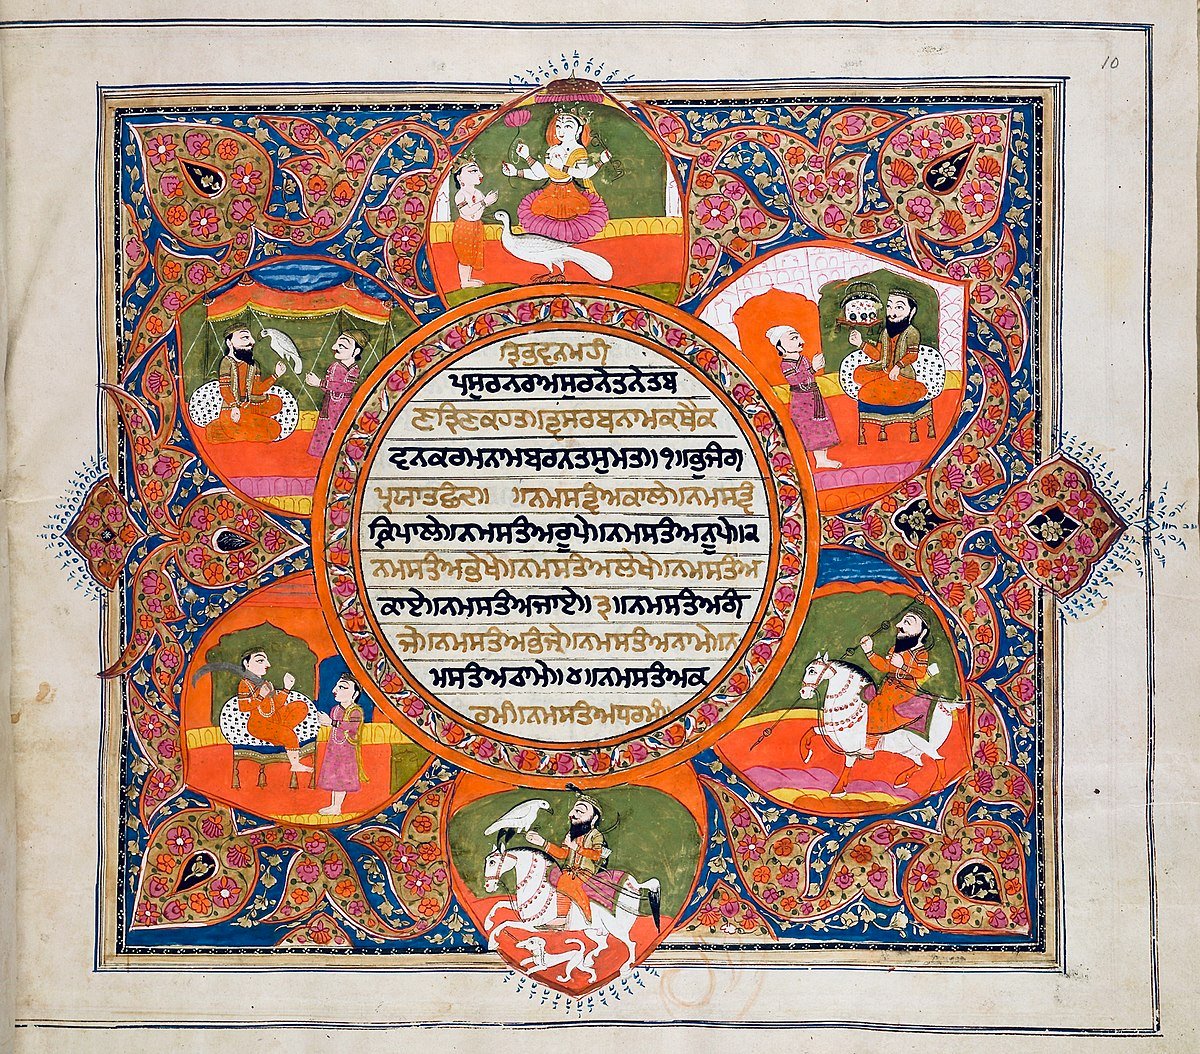 10
ਤ੍ਰਿਭੁਵਨਮਹੀ
ਪਸੁਰਨਰਅਸੁਰਨੇਤਨੇਤਬ
ਣਤ੍ਰਿਣਕਹਤ॥ਤ੍ਵਸਰਬਨਾਮਕਥੈਕ
ਵਨਕਰਮਨਾਮਬਰਨਤਸੁਮਤ॥੧॥ਭੁਜੰਗ
ਪ੍ਰਯਾਤਛੰਦ॥ ॥ਨਮਸਤ੍ਵੰਅਕਾਲੇ॥ਨਮਸਤ੍ਵੰ
ਕ੍ਰਿਪਾਲੇ॥ਨਮਸਤੰਅਰੂਪੇ॥ਨਮਸਤੰਅਨੂਪੇ॥ਕ
ਨਮਸਤੰਅਭੇਖੇ॥ਨਮਸਤੰਅਲੇਖੇ॥ਨਮਸਤੰਅ
ਕਾਏ॥ਨਮਸਤੰਅਜਾਏ॥੩॥ਨਮਸਤੰਅਗੰ
ਜੇ॥ਨਮਸਤੰਅਭੰਜੇ॥ਨਮਸਤੰਅਨਾਮੇ॥ਨ
ਮਸਤੰਅਠਾਮੇ॥੪॥ਨਮਸਤੰਅਕ
ਰਮੰ॥ਨਮਸਤੰਅਧਰਮੰ॥